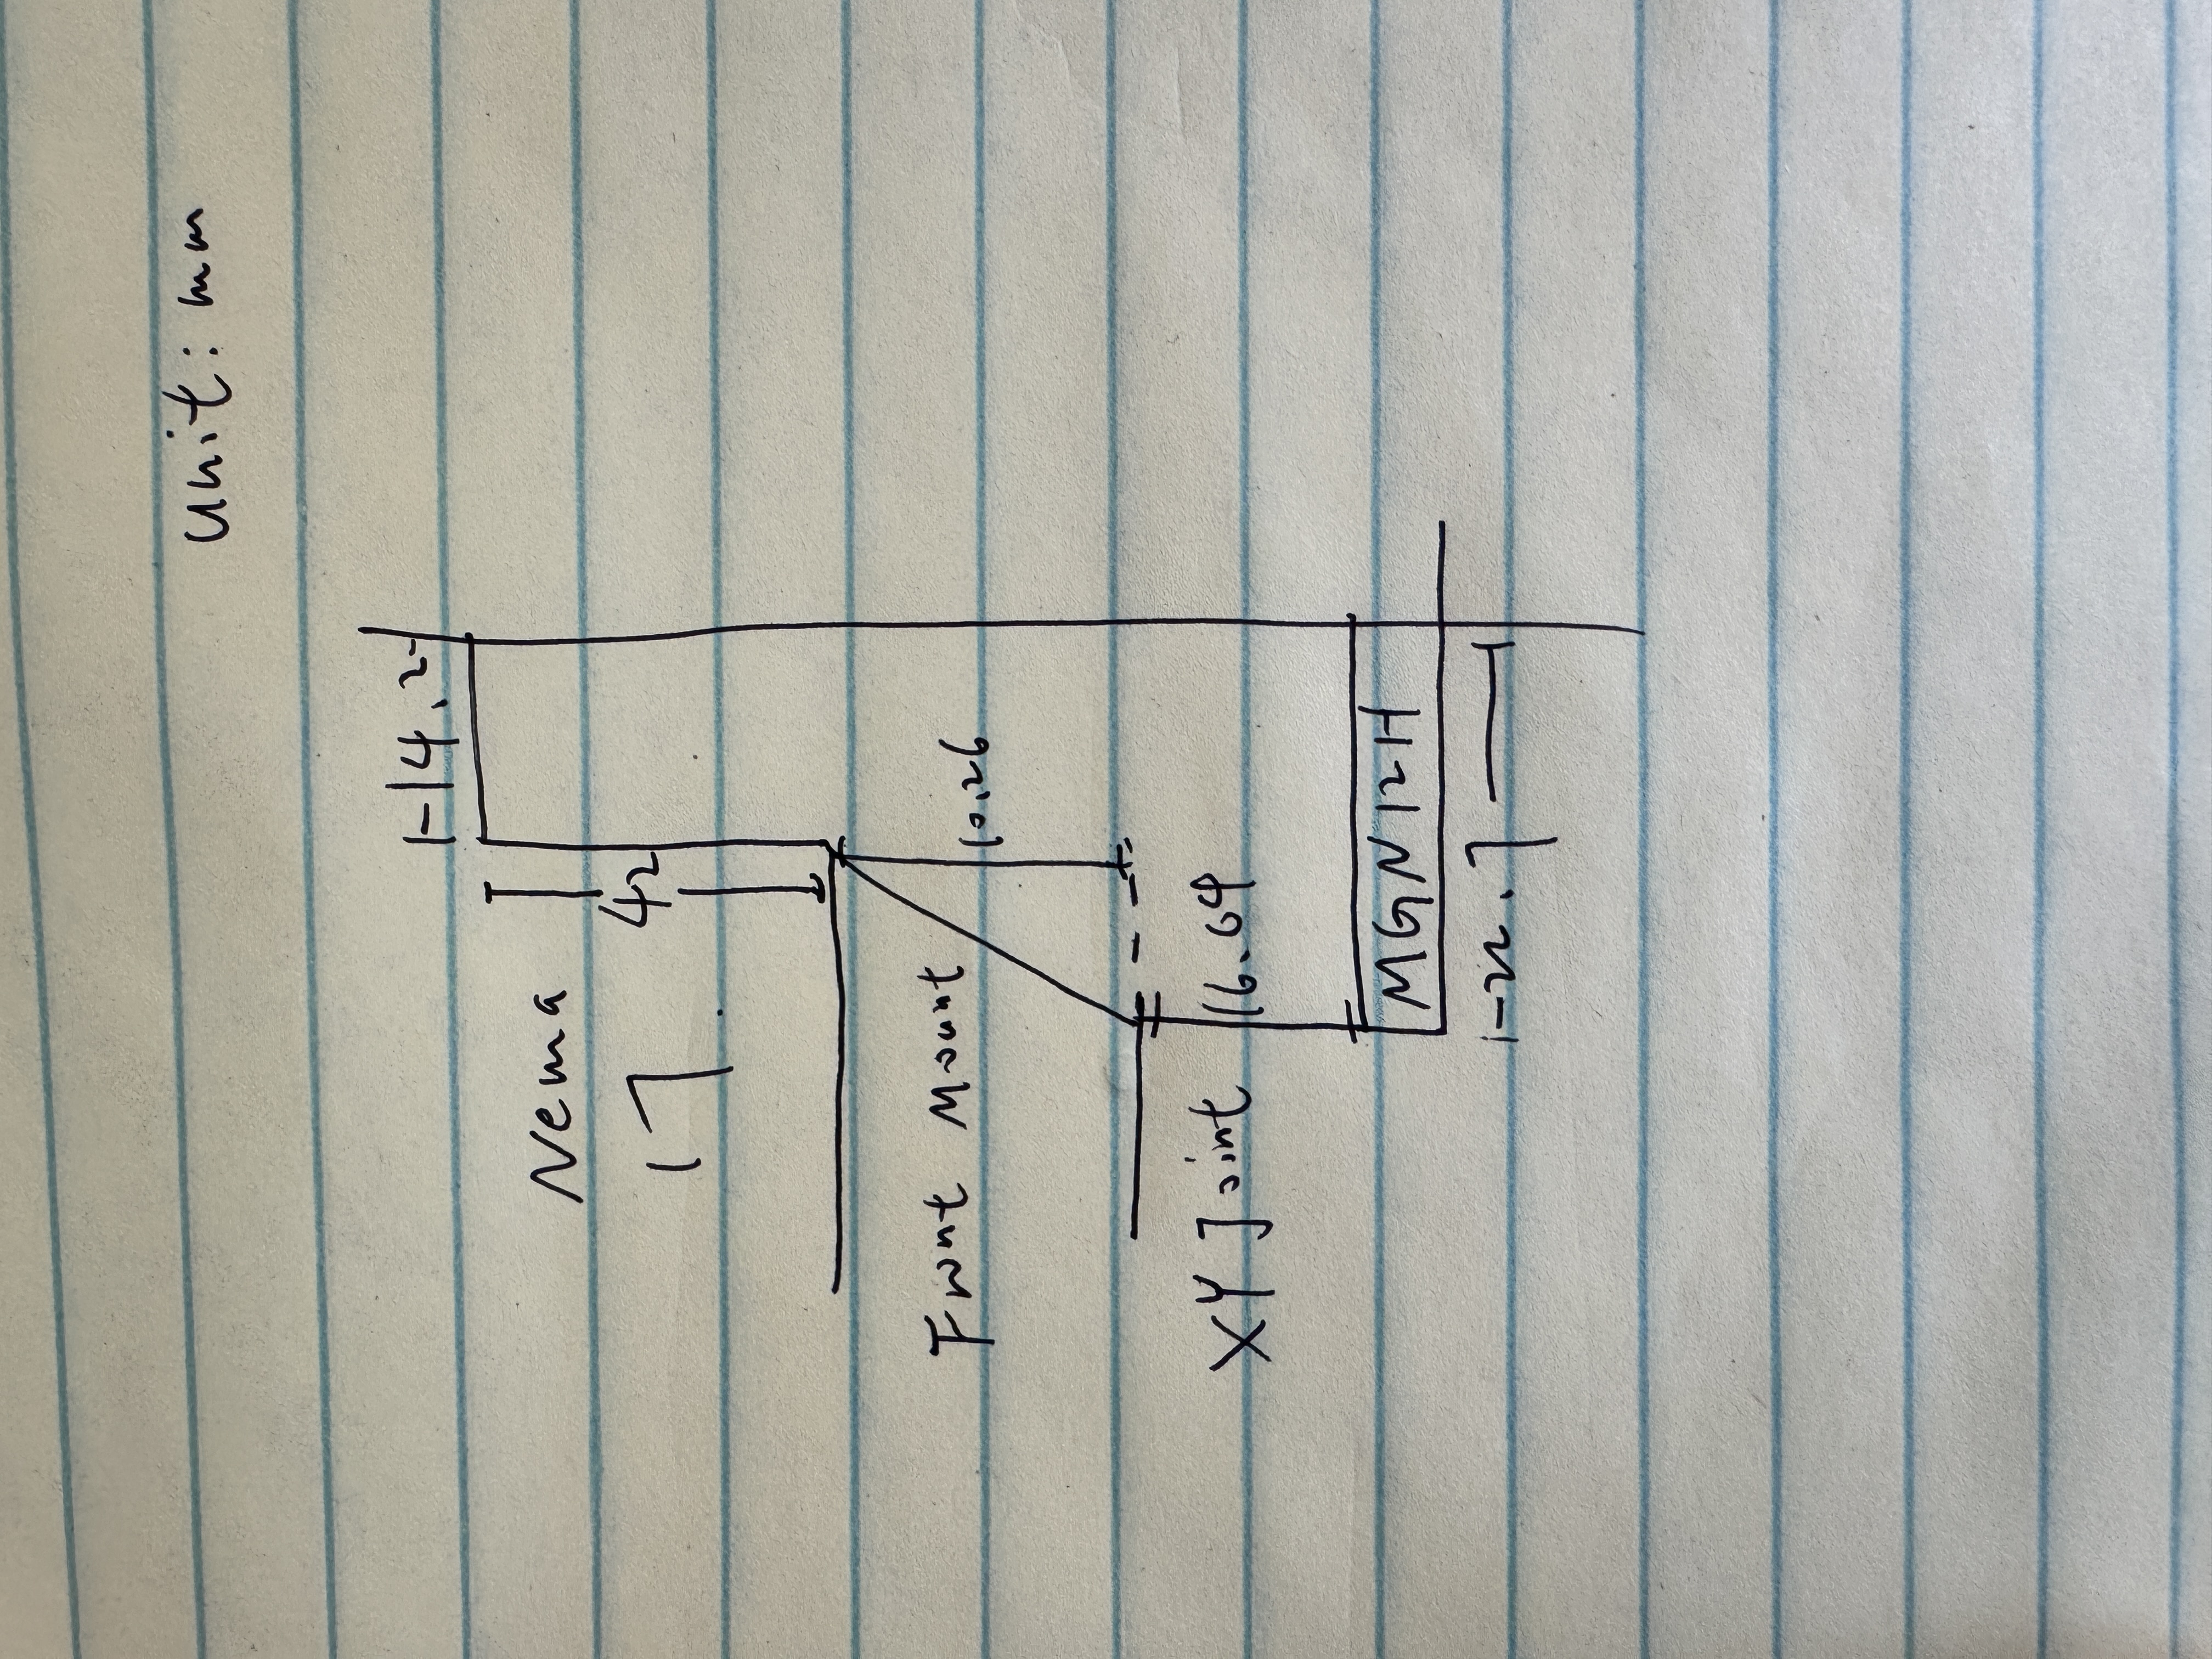 unit: mm
14.2
Nema
42
17.
Front Mount
10.26
XY Joint
16.04
MGN12H
22.7